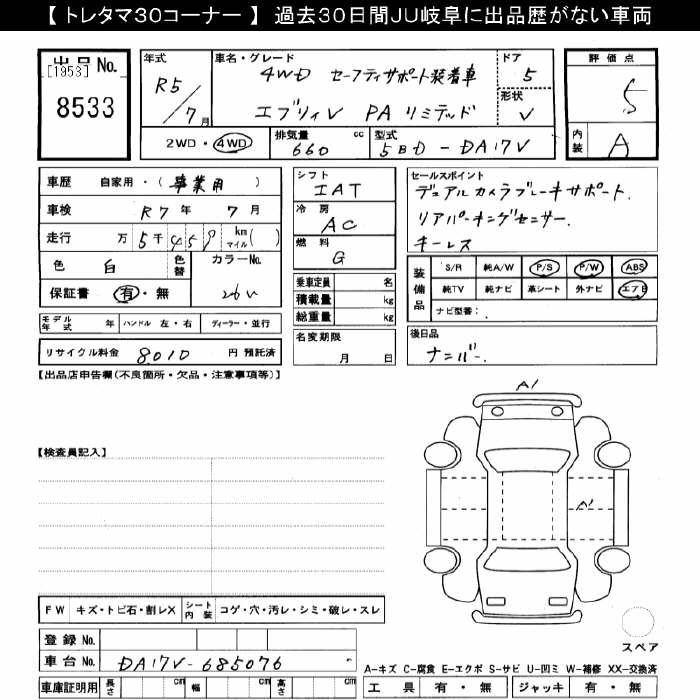 【 トレタマ30コーナー 】 過去30日間JU岐阜に出品歴がない車両
出品 No.
[1953]
8533
年式
R5/7月
車名・グレード
4WD セーフティサポート装着車
エブリィV PA リミテッド
ドア
5
形状
V
評価点
5
内装
A
2WD・4WD
排気量
660
cc
型式
5BD-DA17V
車歴 自家用・(事業用)
車検 R7年 7月
走行 万5千459 km マイル( )
色 白 色替 カラーNo.
26V
保証書 有・無
シフト
IAT
冷房
AC
燃料
G
乗車定員 名
積載量 kg
総重量 kg
セールスポイント
デュアルカメラブレーキサポート.
リアパーキングセンサー.
キーレス
装備品
S/R 純A/W P/S P/W ABS
純TV 純ナビ 革シート 外ナビ エアB
ナビ型番:
モデル年式 年 ハンドル 左・右 ディーラー・並行
リサイクル料金 8010 円 預託済
名変期限
月 日
後日品
ナンバー.
【出品店申告欄(不良箇所・欠品・注意事項等)】
A1
【検査員記入】
A1
FW キズ・トビ石・割レX シート内装 コゲ・穴・汚レ・シミ・破レ・スレ
登録 No.
車台 No. DA17V-685076
スペア
A-キズ C-腐食 E-エクボ S-サビ U-凹ミ W-補修 XX-交換済
車庫証明用 長さ cm 幅 cm 高さ cm
工具 有・無 ジャッキ 有・無